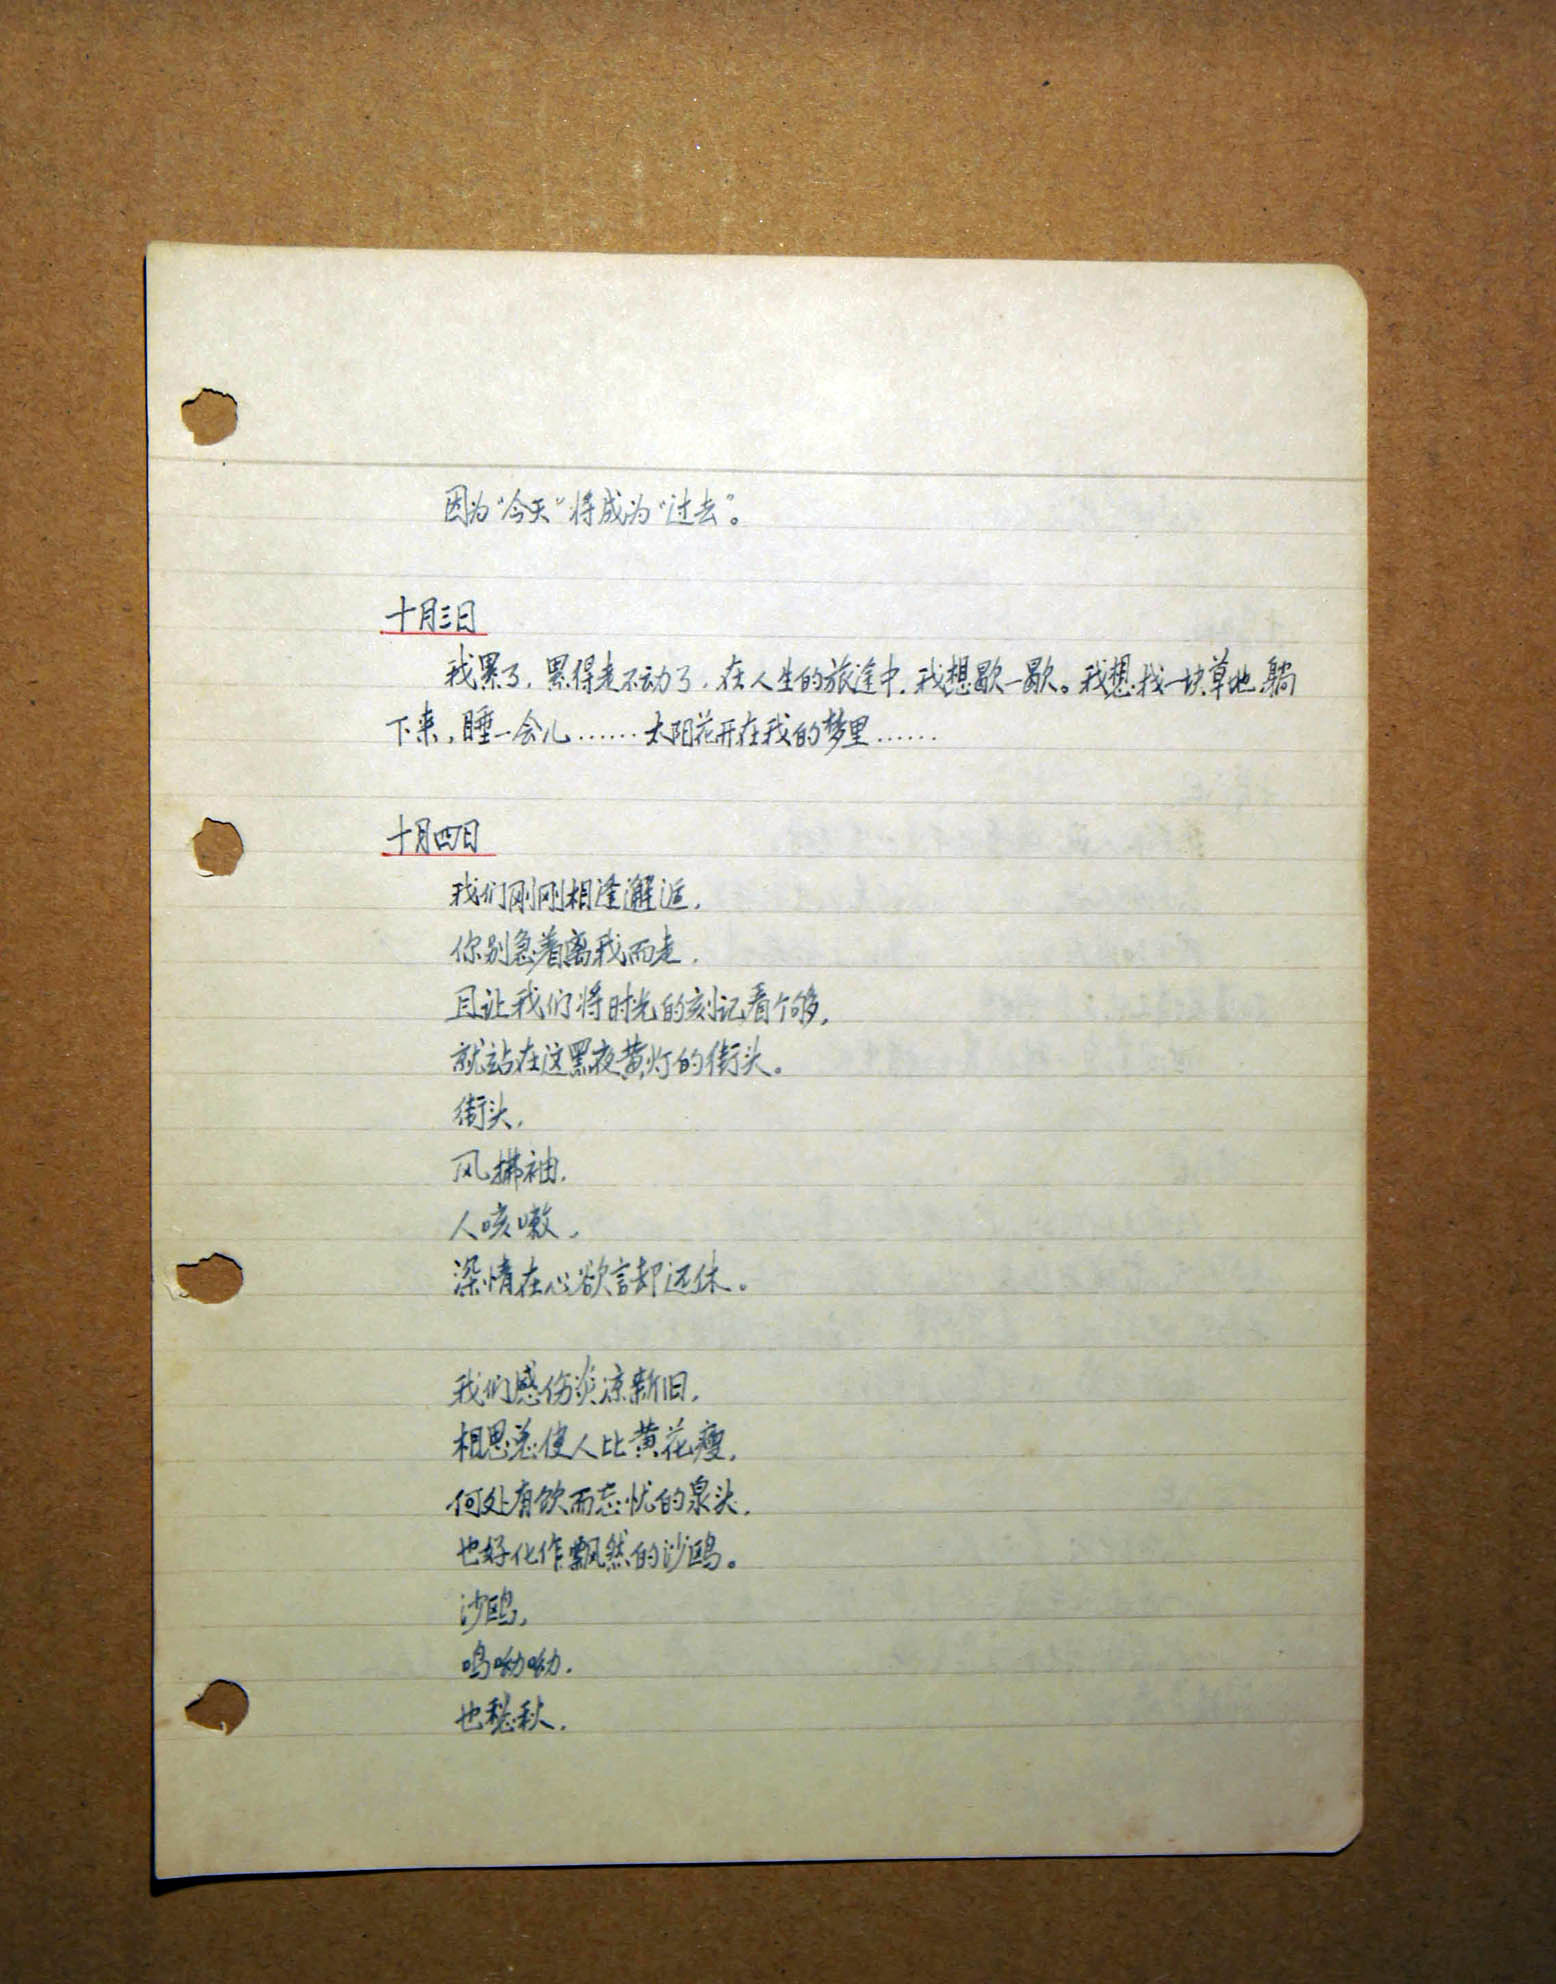 因为“今天”将成为“过去”。
十月三日
我累了，累得走不动了，在人生的旅途中，我想歇一歇。我想找一块草地，躺
下来，睡一会儿……太阳花开在我的梦里……
十月四日
我们刚刚相逢邂逅，
你别急着离我而走，
且让我们将时光的刻记看个够，
就站在这黑夜黄灯的街头。
街头，
风拂袖，
人咳嗽，
深情在心欲言却还休。
我们感伤炎凉新旧，
相思总使人比黄花瘦，
何处有饮而忘忧的泉头，
也好化作飘然的沙鸥。
沙鸥，
鸣呦呦，
也愁秋，